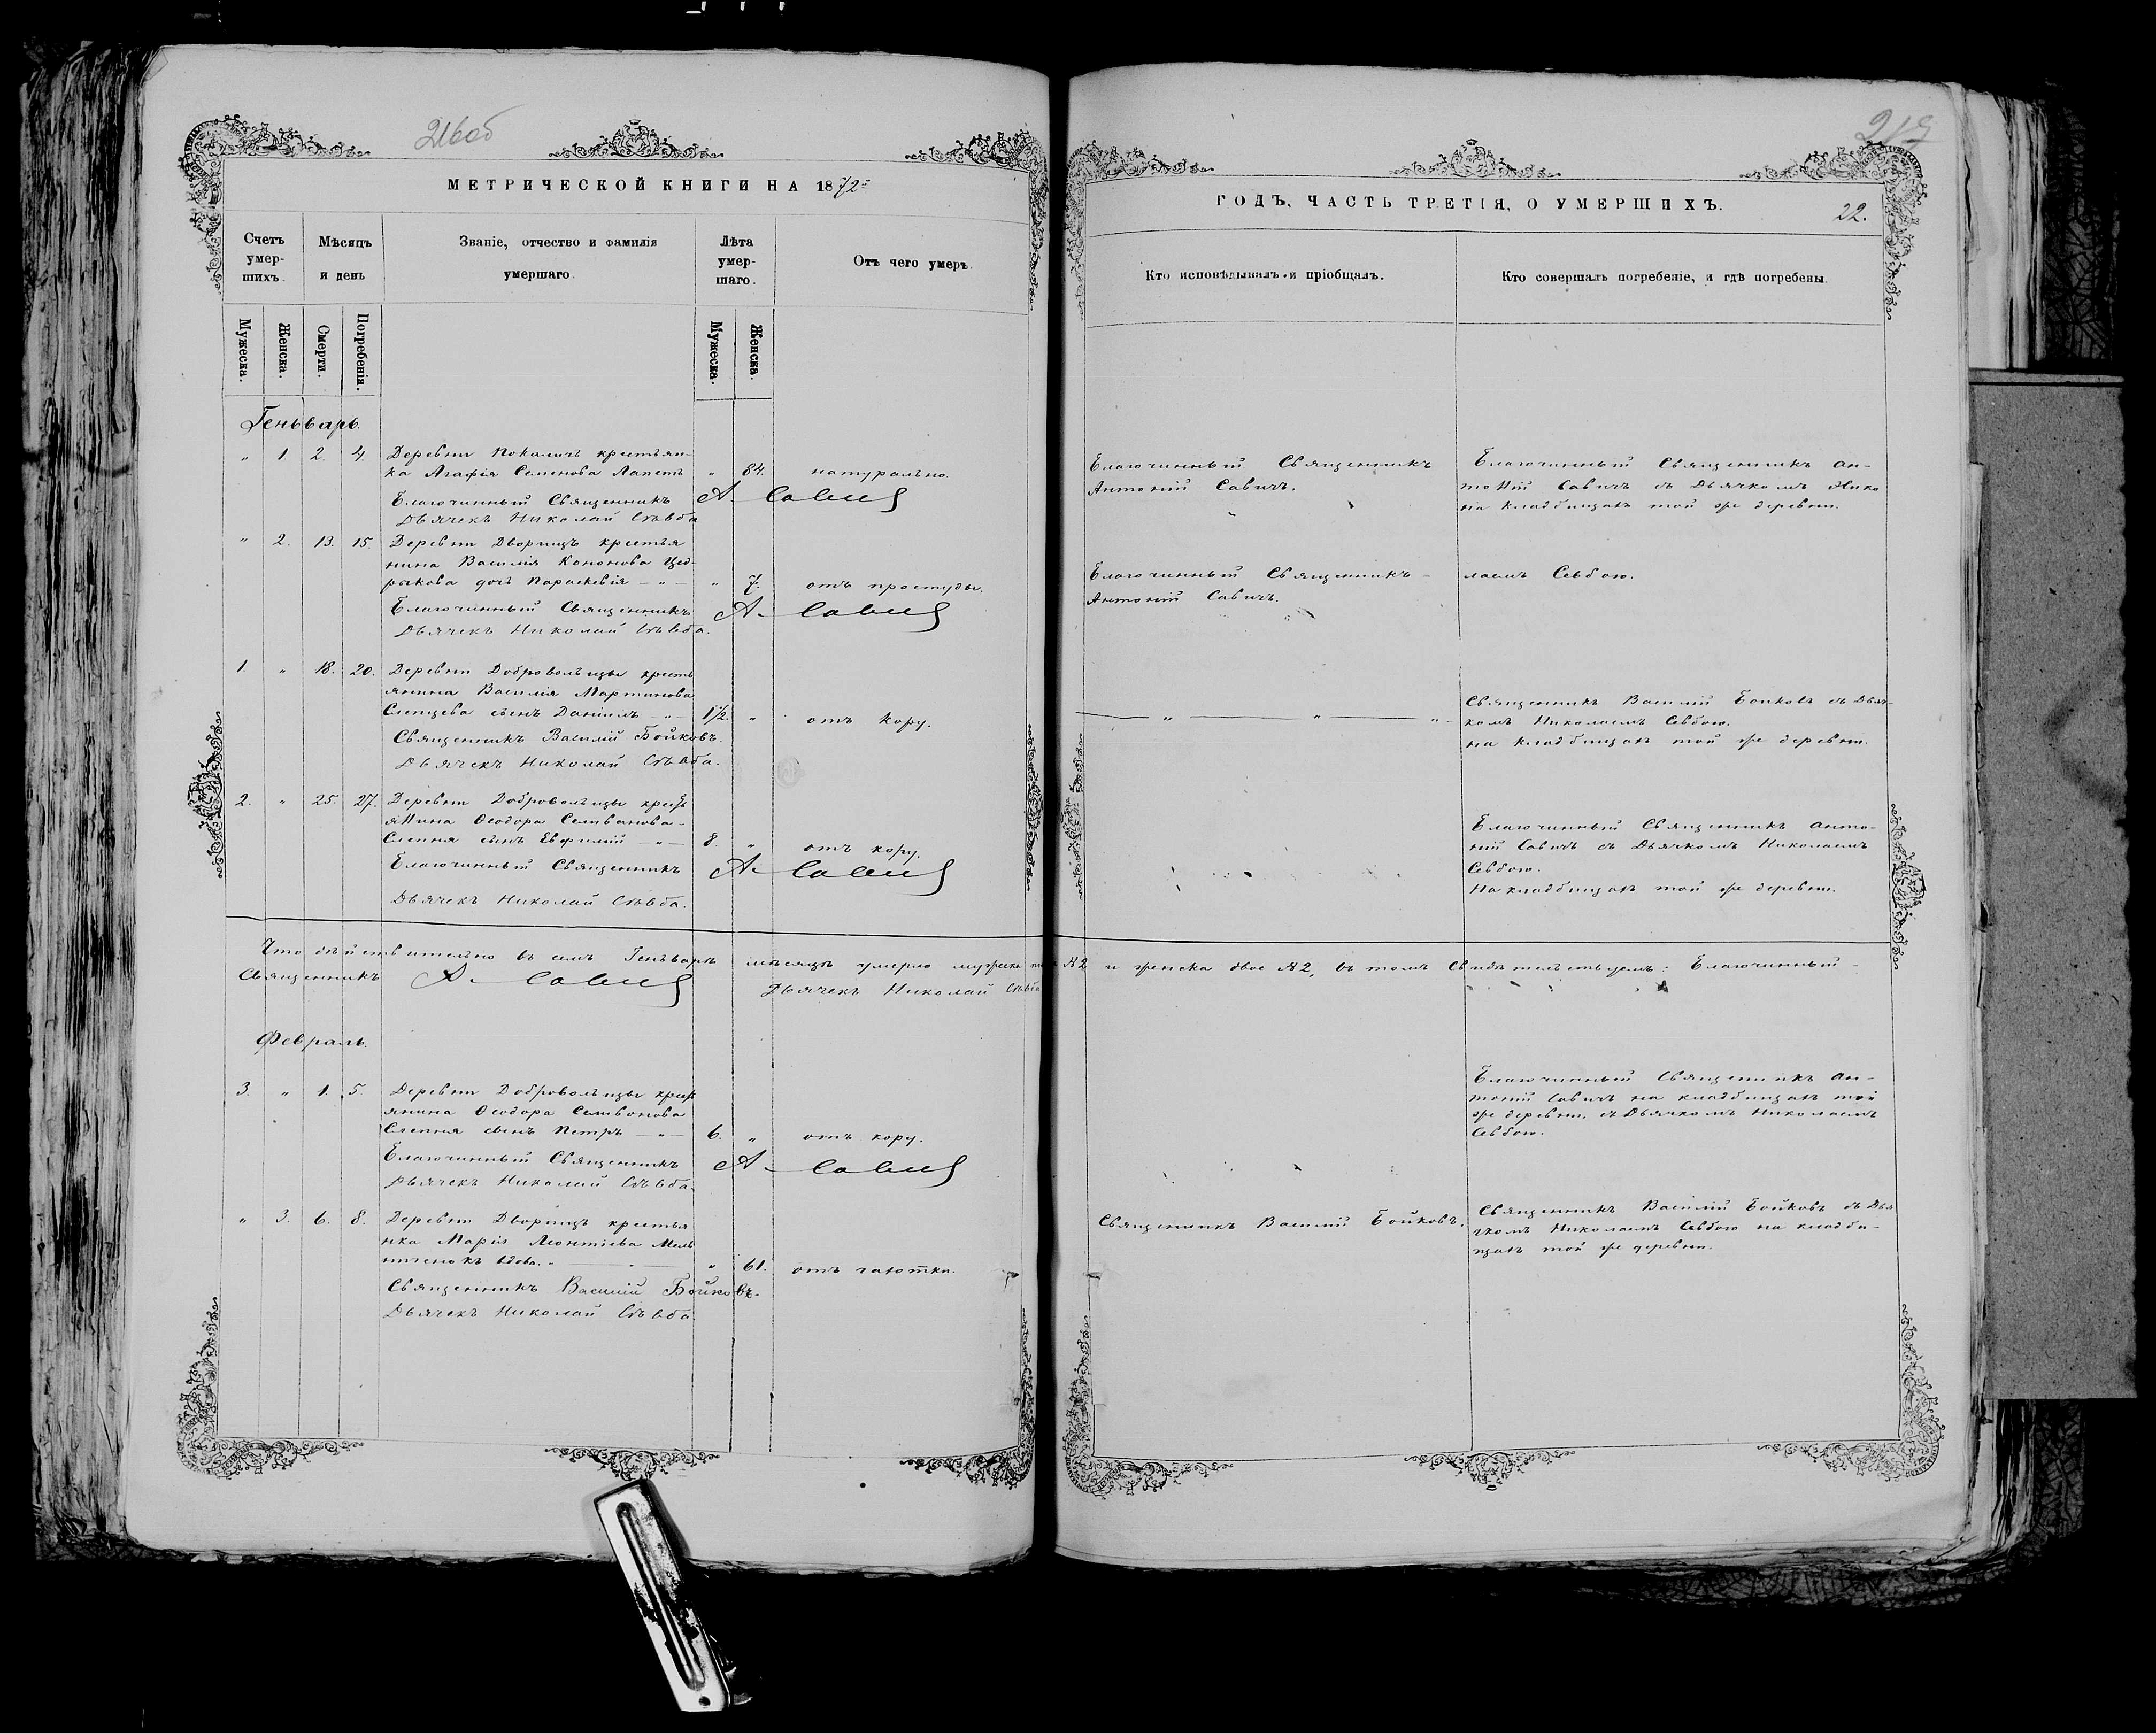 216об
МЕТРИЧЕСКОЙ КНИГИ НА 1872
Счетъ умер-шихъ.
Мѣсяцъ и день
Званіе, отчество и фамилія умершаго.
Лѣта умер-шаго.
Отъ чего умеръ.
Мужеска.
Женска.
Смерти.
Погребенія.
Мужеска.
Женска.
Геньварь.
„ 1. 2. 4. Деревни Покаличъ крестьян-
ка Агафія Семенова Лапеть „ 84. натурально.
Благочинный Священникъ А. Савичъ
Дьячекъ Николай Сѣвба
„ 2. 13. 15. Деревни Дворищъ крестья
нина Василія Кононова Цед-
рыкова дочь Параскевія — „ — „ 7. отъ простуды.
Благочинный Священникъ А. Савичъ
Дьячекъ Николай Сѣвба.
1. „ 18. 20. Деревни Добровольцы кресть
янина Василія Мартинова
Слепцева сынъ Даніилъ „ — 1½. „ отъ кору.
Священникъ Василій Бойковъ.
Дьячекъ Николай Сѣвба.
2. „ 25. 27. Деревни Добровольцы кресть
янина Ѳеодора Селиванова-
Слепня сынъ Евфимій — „ — 8. „ отъ кору.
Благочинный Священникъ А. Савичъ
Дьячекъ Николай Сѣвба.
Что дѣйствительно въ семъ Геньварѣ мѣсяцѣ умерло мужеска
Священникъ А. Савичъ Дьячекъ Николай Сѣвба
Февраль.
3. „ 1. 5. Деревни Добровольцы крест
янина Ѳеодора Селивонова
Слепня сынъ Петръ — „ — 6. „ отъ кору.
Благочинный Священникъ А. Савичъ
Дьячекъ Николай Сѣвба.
„ 3. 6. 8. Деревни Дворищъ крестья
нка Марія Леонтіева Мель
ниченокъ вдова. „ 61. отъ чахотки.
Священникъ Василій Бойковъ.
Дьячекъ Николай Сѣвба
217
ГОДЪ, ЧАСТЬ ТРЕТІЯ, О УМЕРШИХЪ.
22.
Кто исповѣдывалъ и пріобщалъ.
Кто совершалъ погребеніе, и гдѣ погребены.
Благочинный Священникъ
Антоній Савичъ.
Благочинный Священникъ Ан-
тоній Савичъ съ Дьячкомъ Нико
на кладбищахъ той же деревни.
Благочинный Священникъ —
Антоній Савичъ.
лаемъ Севбою.
— „ — „ — „
Священникъ Василій Бойковъ съ Дьяч-
комъ Николаемъ Севбою.
на кладбищахъ той же деревни.
Благочинный Священникъ Анто-
ній Савичъ съ Дьячкомъ Николаемъ
Севбою.
На кладбищахъ той же деревни.
№2 и женска двое №2, въ томъ свидѣтельствуемъ: Благочинный —
Благочинный Священникъ Ан-
тоній Савичъ на кладбищахъ той
же деревни. съ Дьячкомъ Николаемъ
Севбою.
Священникъ Василій Бойковъ.
Священникъ Василій Бойковъ съ Дья
чкомъ Николаемъ Севбою на кладби-
щахъ той же деревни.